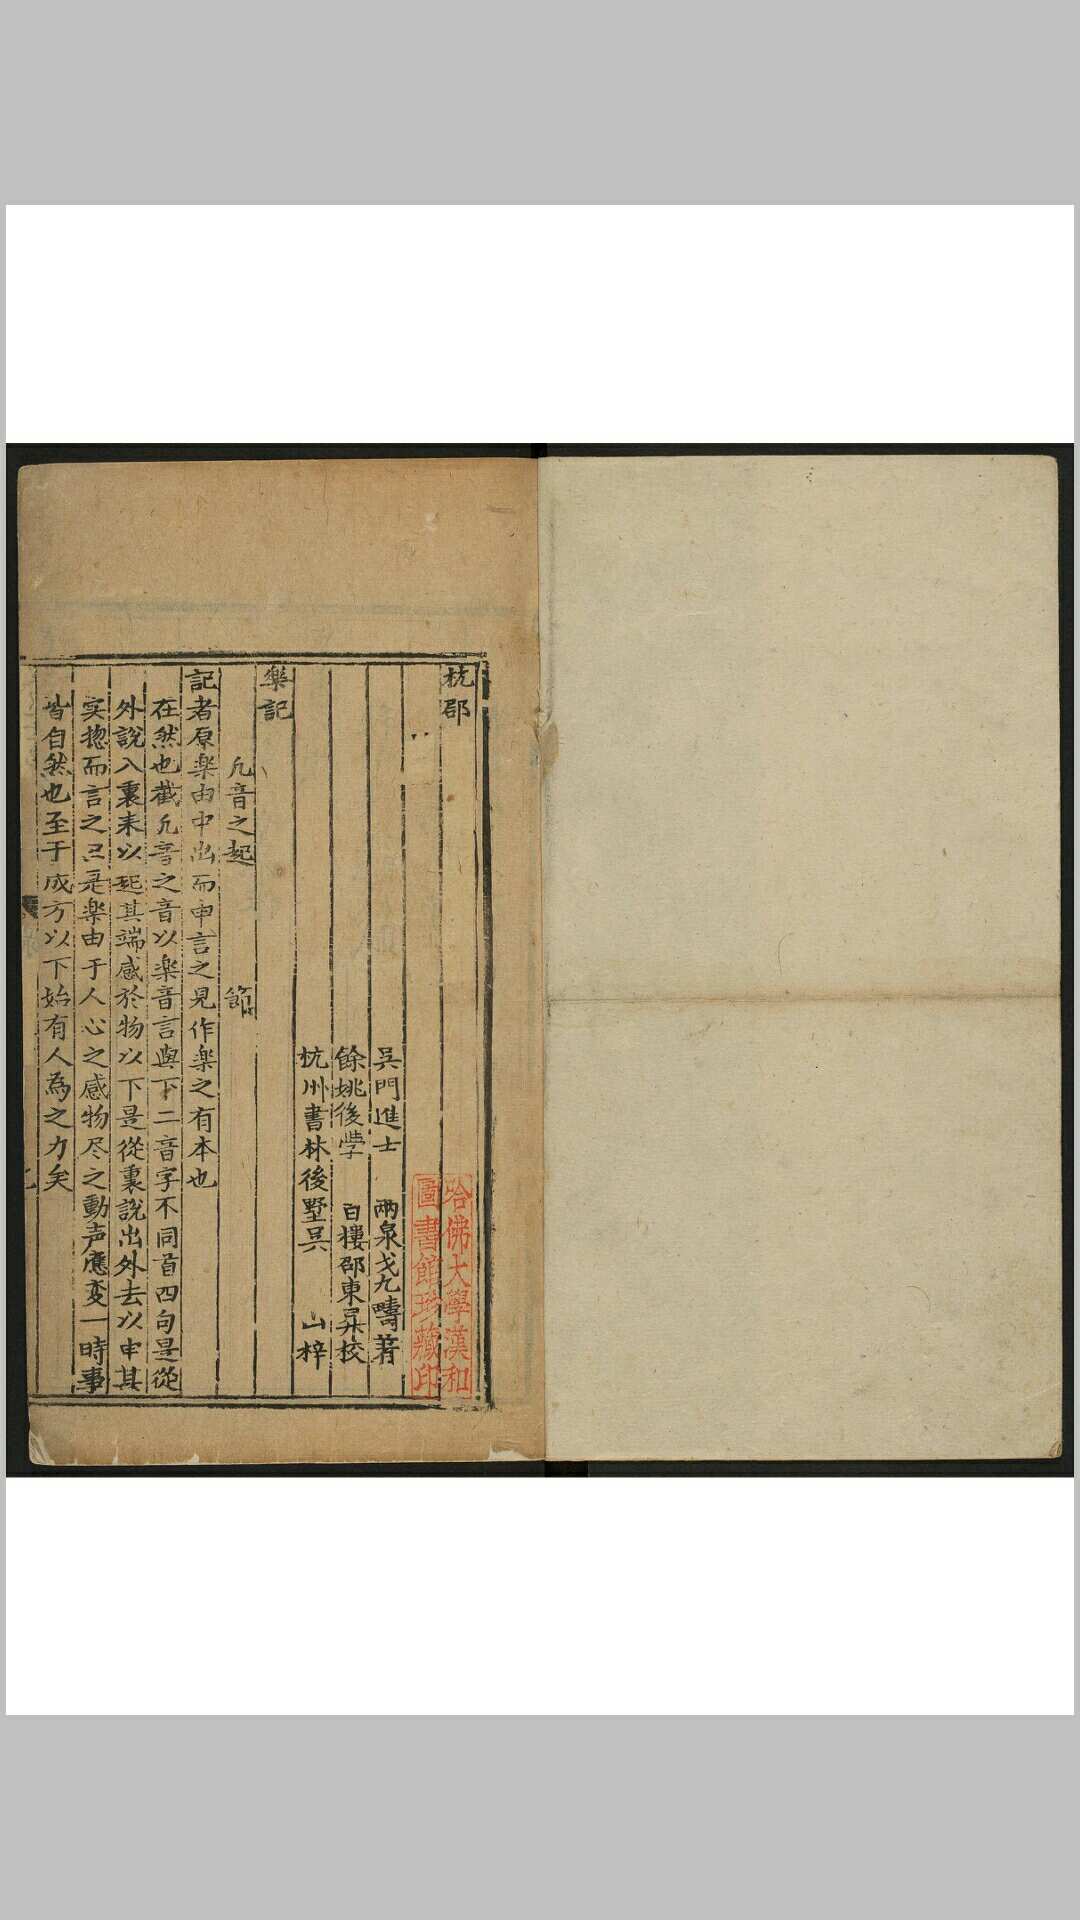 杭邵
吳門進士 兩泉戈九疇著
餘姚後学 百樓邵東昇校
杭州書林後墅吳 山梓
楽記
凢音之起 節
記者原楽由中出而申言之見作楽之有本也
在然也截凢音之音以楽音言與下二音字不同首四句是從
外說入裏来以起其端感於物以下是從裏說出外去以申其
实揔而言之只是楽由于人心之感物尽之動声應変一時事
皆自然也至于成方以下始有人為之力矣
哈佛大學漢和
圖書館珍藏印